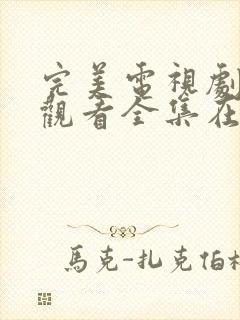 完美電視劇
觀看全集在
馬克-扎克伯格